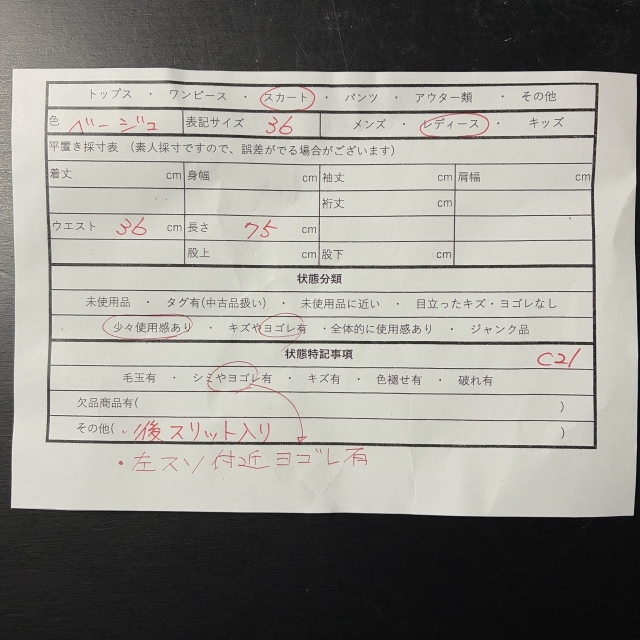 トップス ・ ワンピース ・ スカート ・ パンツ ・ アウター類 ・ その他
色 ベージュ 表記サイズ 36 メンズ ・ レディース ・ キッズ
平置き採寸表 （素人採寸ですので、誤差がでる場合がございます）
着丈 cm 身幅 cm 袖丈 cm 肩幅 cm
裄丈 cm
ウエスト 36 cm 長さ 75 cm
股上 cm 股下 cm
状態分類
未使用品 ・ タグ有(中古品扱い) ・ 未使用品に近い ・ 目立ったキズ・ヨゴレなし
少々使用感あり ・ キズやヨゴレ有 ・全体的に使用感あり ・ ジャンク品
状態特記事項 C21
毛玉有 ・ シミやヨゴレ有 ・ キズ有 ・ 色褪せ有 ・ 破れ有
欠品商品有( )
その他( ・後スリット入り )
・左スソ付近ヨゴレ有